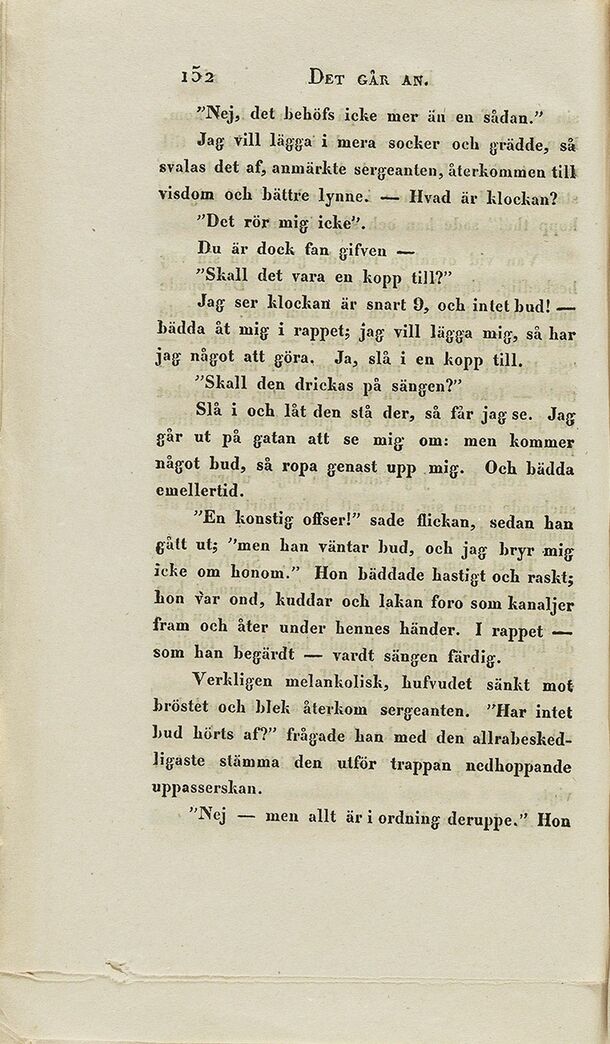 152 DET GÅR AN.
”Nej, det behöfs icke mer än en sådan.”
Jag vill lägga i mera socker och grädde, så
svalas det af, anmärkte sergeanten, återkommen till
visdom och bättre lynne. — Hvad är klockan?
”Det rör mig icke”.
Du är dock fan gifven —
”Skall det vara en kopp till?”
Jag ser klockan är snart 9, och intet bud! —
bädda åt mig i rappet; jag vill lägga mig, så har
jag något att göra. Ja, slå i en kopp till.
”Skall den drickas på sängen?”
Slå i och låt den stå der, så får jag se. Jag
går ut på gatan att se mig om: men kommer
något bud, så ropa genast upp mig. Och bädda
emellertid.
”En konstig offser!” sade flickan, sedan han
gått ut; ”men han väntar bud, och jag bryr mig
icke om honom.” Hon bäddade hastigt och raskt;
hon var ond, kuddar och lakan foro som kanaljer
fram och åter under hennes händer. I rappet —
som han begärdt — vardt sängen färdig.
Verkligen melankolisk, hufvudet sänkt mot
bröstet och blek återkom sergeanten. ”Har intet
bud hörts af?” frågade han med den allrabesked-
ligaste stämma den utför trappan nedhoppande
uppasserskan.
”Nej — men allt är i ordning deruppe.” Hon